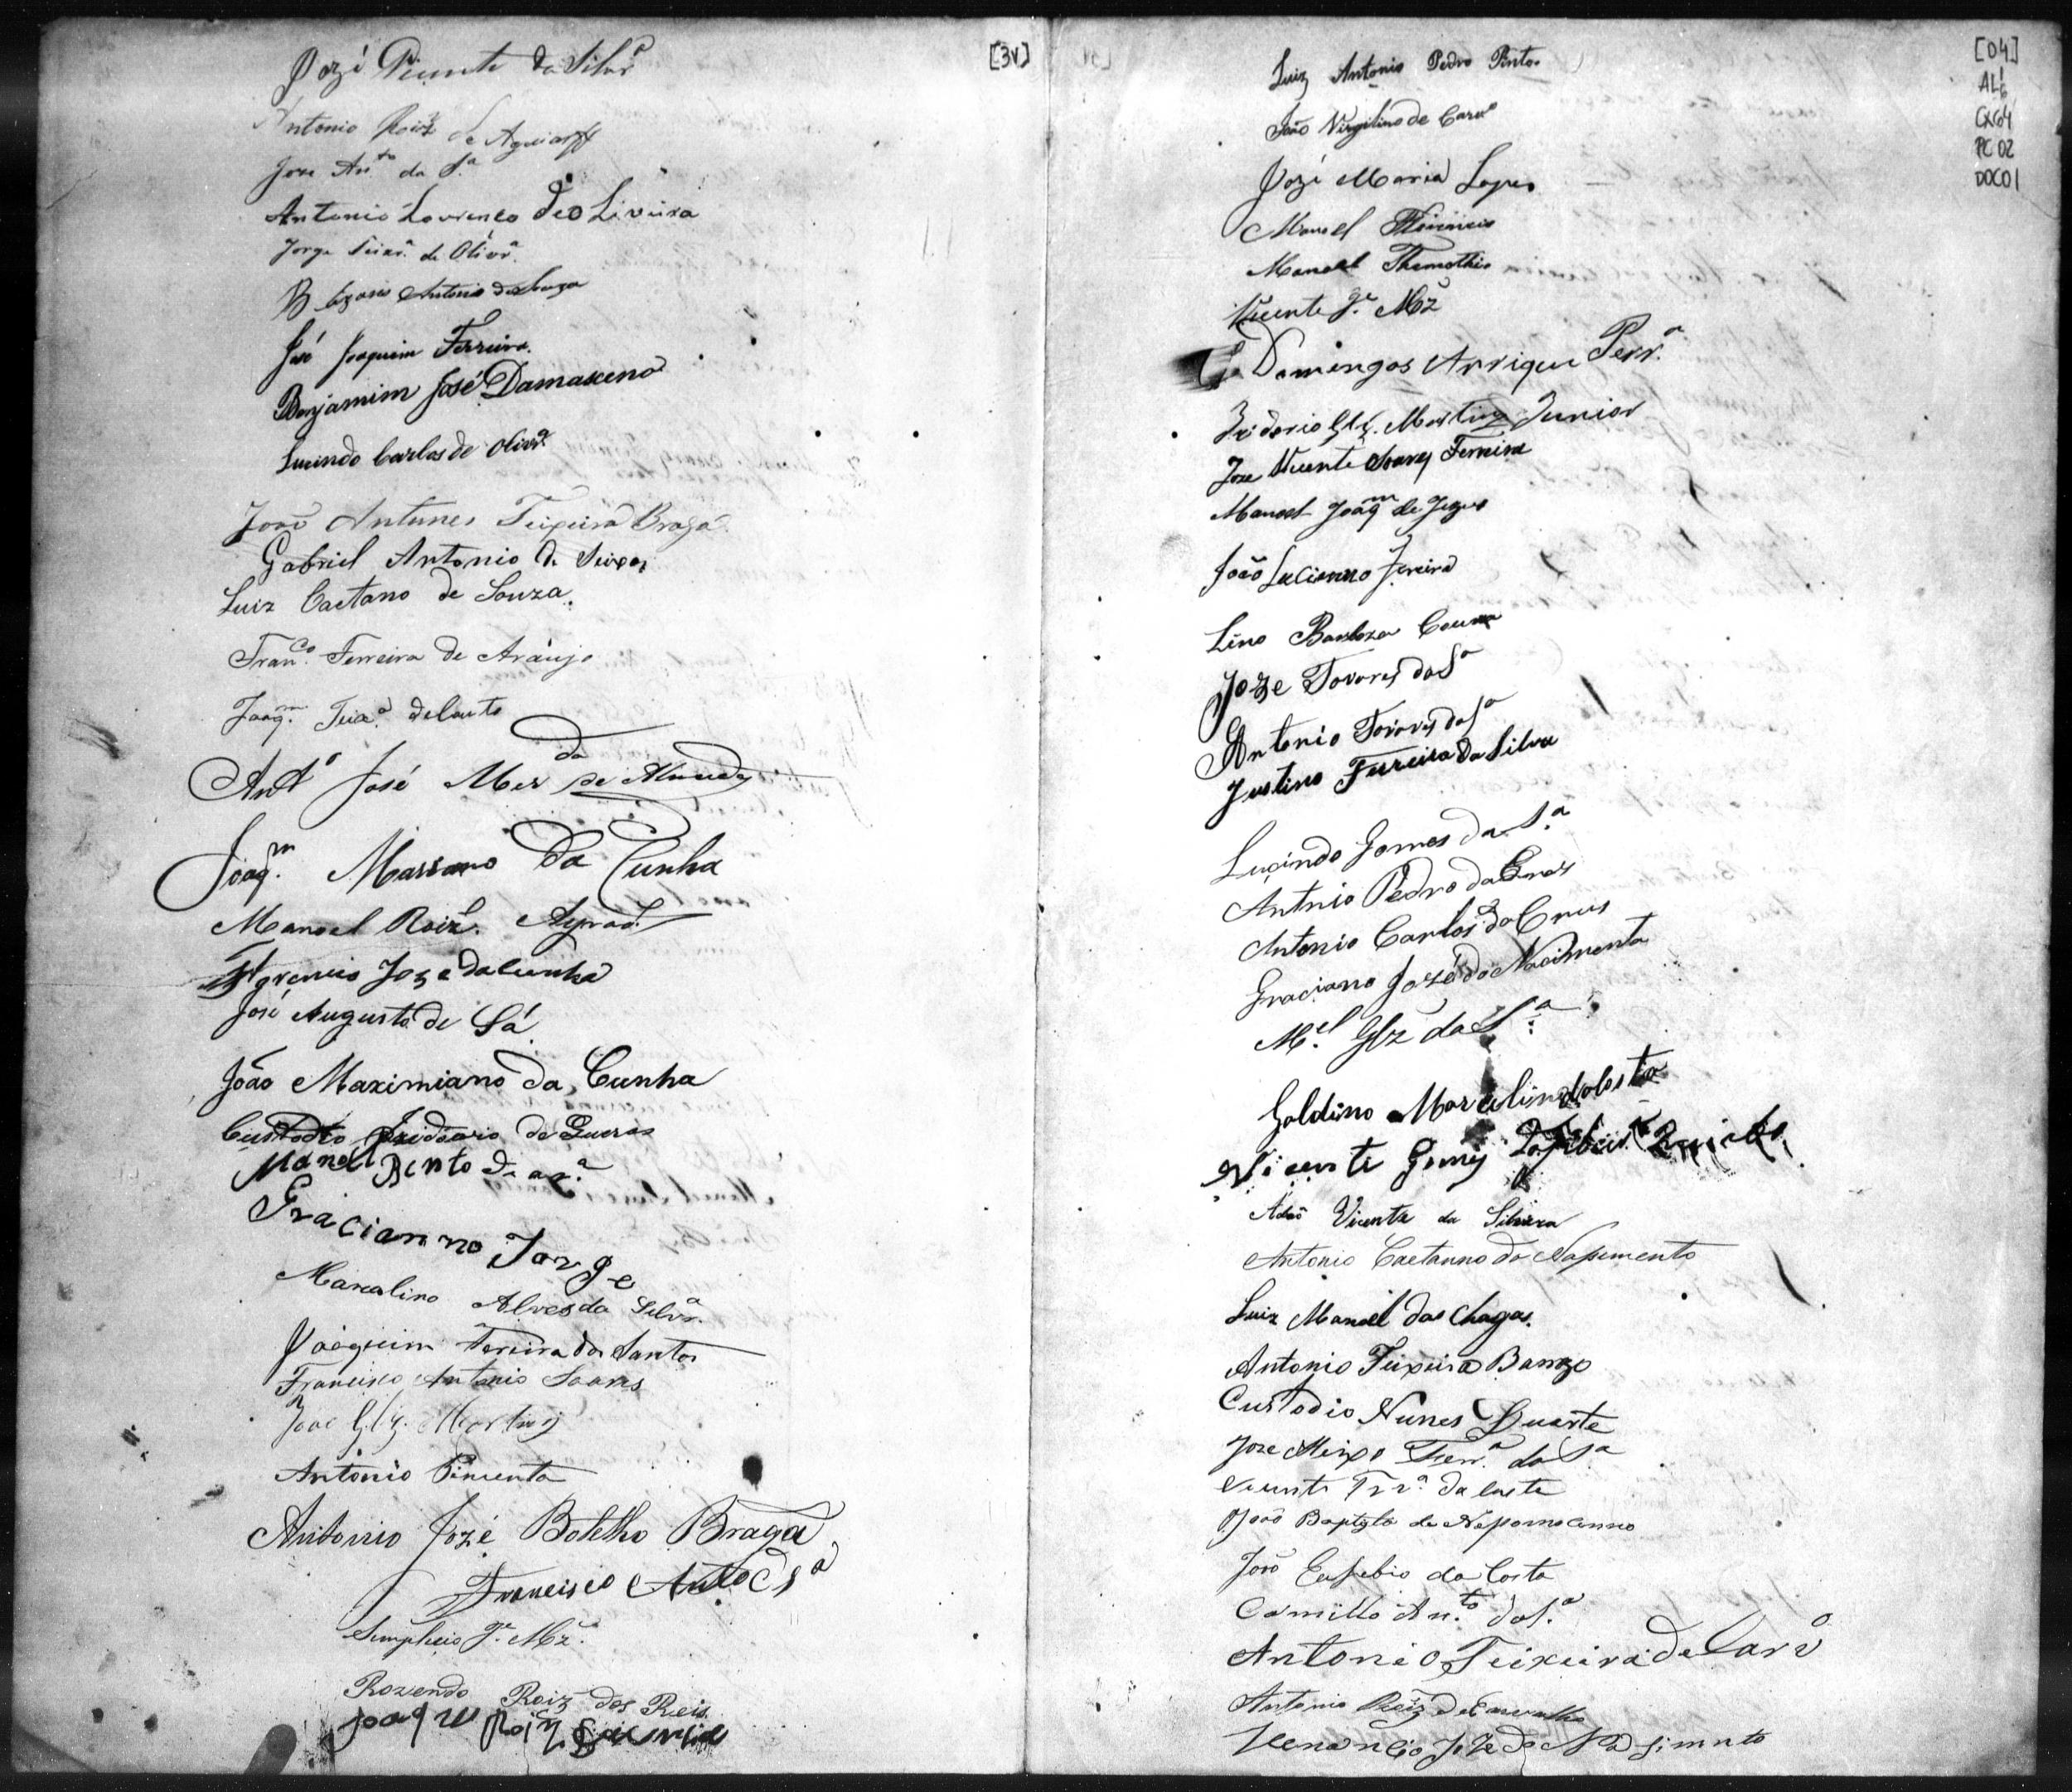 [3v]
Jozé Vicente da Silvª
Antonio Roiz de Aguiar
Joze Anto da Sª
Antonio Lourenco deoLiveira
Jorge Teixrª de Olivrª
Antonio de Souza
José Joaquim Ferreira.
Benjamim José Damasceno
Lucindo Carlos de Olivrª
João Antunes Teixeira Braga
Gabriel Antonio de Seixas
Luiz Caetano de Souza.
Franco. Ferreira de Araujo
Joaqm. Teixª deCouto
Anto José Mer da de Almeida
Joaqm. Marianno da Cunha
Manoel Roiz.
Florencio Joze daCunha
José Augusto de Sá
João Maximiano da Cunha
Custodio de Queros
Manoel Bento de arª
Gracianno Jorge
Marcalino Alves da Silvª
Joaquim Fereira dos Santos
Francisco Antonio Soares
Joze Glz. Martins
Antonio Pimenta
Antonio Jozé Botelho Braga
Francisco Anto d Sª
Simplicio Je. Mz.
Rozendo Roiz dos Reis
Joaq Roiz
[04]
AL16
CX64
PC 02
DOC01
Luiz Antonio Pedro Pinto.
João Virgilino de Carvº
Jozé Maria Lopes
Manoel
Manoel Themothio
Vicente Je. Mz
Domingos Arrique Perrª
Glz. Martins Junior
Joze Vicente Soares Ferreira
Manoel Joaqm de Jezus
João Lucianno Fereira
Lino Barboza
Joze Tavares da Sª
Antonio Tavares da Sª
Justino Ferreira da Silva
Lucindo Gomes da Sª
Antnio Pedro da Crus
Antonio Carlos da Crus
Graciano José do Nacimento
Mel. Glz da Sª
Galdino Marcelino daCosta
Vicente Gomes
Adão Vicente da Silveira
Antonio Caetanno do Nasimento
Luiz Manoel das Chagas.
Antonio Teixeira
Custodio Nunes Duarte
Joze Ferrª da Sª
Vicente Frrª da Costa
João Baptista de Nepomocenno
João Eusebio da Costa
Camillo Anto da Sª
Antonio Teixeira de Carvº
Antonio Roiz de Carvalho
Venancio JoZe do Nasimnto